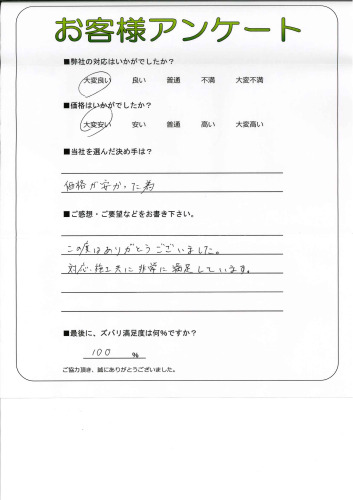 お客様アンケート
■弊社の対応はいかがでしたか?
大変良い 良い 普通 不満 大変不満
■価格はいかがでしたか?
大変安い 安い 普通 高い 大変高い
■当社を選んだ決め手は?
価格が安かった為
■ご感想・ご要望などをお書き下さい。
この度はありがとうございました。
対応、施工共に非常に満足しています。
■最後に、ズバリ満足度は何%ですか?
100 %
ご協力頂き、誠にありがとうございました。